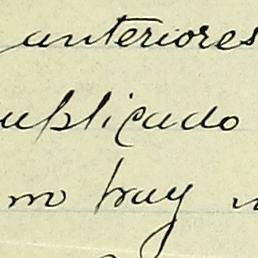 anteriores
ublicado
no hay